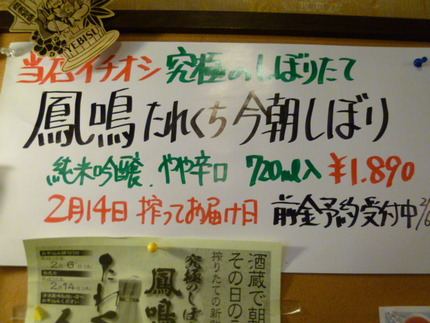 YEBISU
当店イチオシ 究極のしぼりたて
鳳鳴 たれくち 今朝しぼり
純米吟醸 やや辛口 720ml入 ¥1.890
2月14日 搾ってお届け日 前金予約受付中
酒蔵で朝
その日の
搾りたての新
究極のしぼ
鳳鳴
たれ
2月6日
2月14日